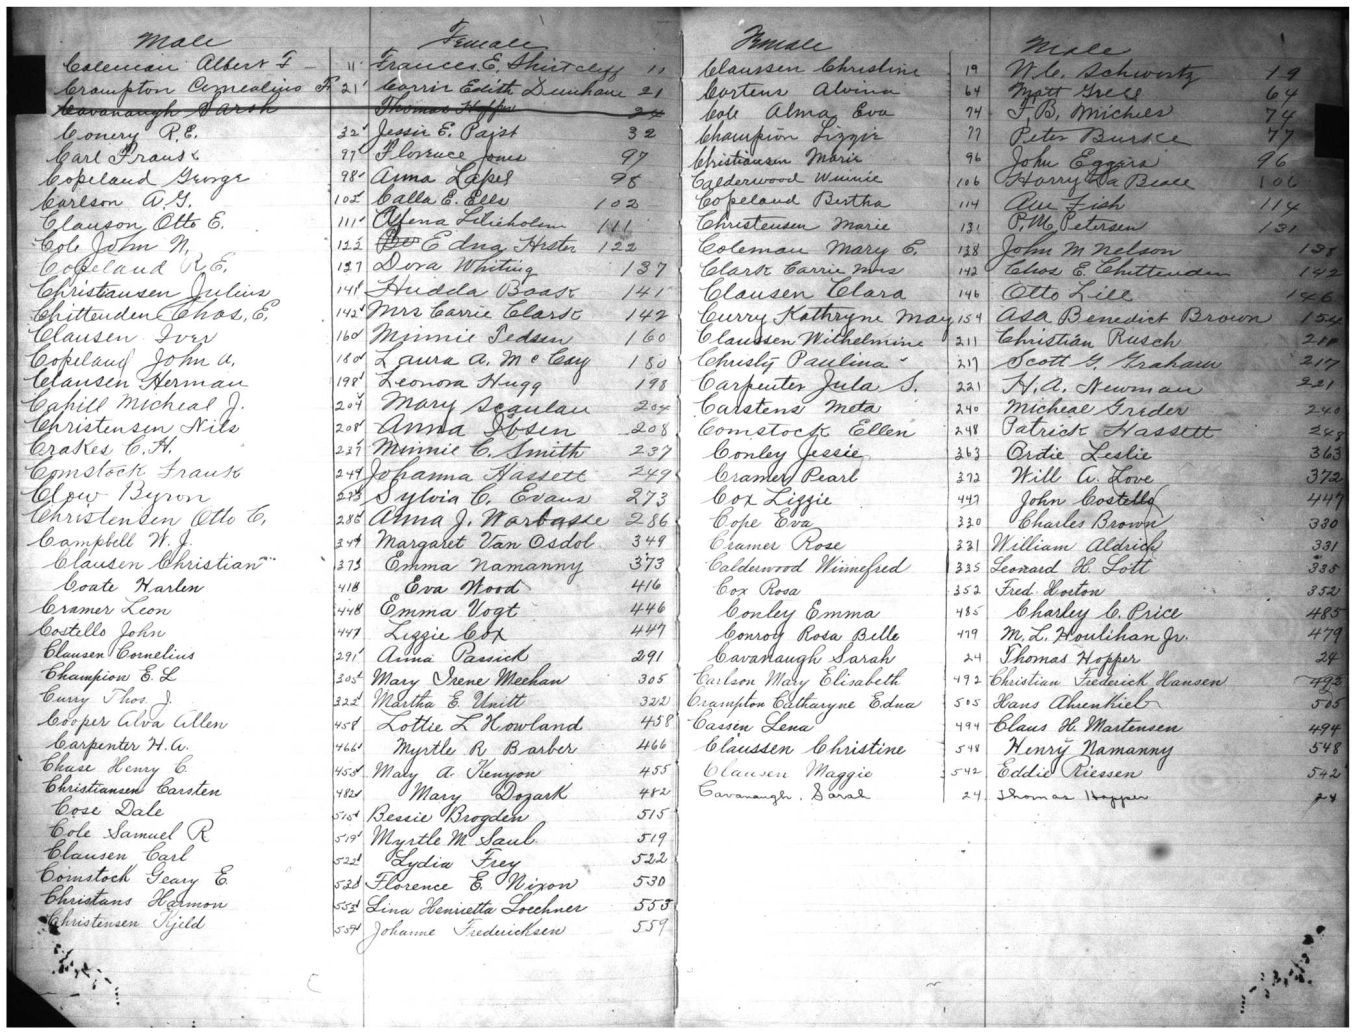 Male Female
Coleman Albert F 11 Frances E. Shirtcliff 11
Crampton Cornealius F 21 Carrie Edith Dunham 21
Cavanaugh Sarah Thomas Hopper 24
Conery R.E. 32 Jessie E. Paist 32
Carl Frank 97 Florence Jones 97
Copeland George 98 Anna Lapel 98
Carlson A.G. 102 Calla E. Ells 102
Clauson Otto E. 111 Alfena Lilieholm 111
Cole John N. 122 Edna Hester 122
Copeland R.E. 137 Dora Whiting 137
Christiansen Julius 141 Hudda Baak 141
Chittenden Chas. E. 142 Mrs Carrie Clark 142
Clausen Iver 160 Minnie Tedsen 160
Copeland John A. 180 Laura A. McCay 180
Clausen Herman 198 Leonora Hugg 198
Cahill Micheal J. 204 Mary Scanlan 204
Christensen Nils 208 Anna Ibsen 208
Crakes C.H. 237 Minnie C. Smith 237
Comstock Frank 249 Johanna Hassett 249
Clow Byron 273 Sylvia C. Evans 273
Christensen Otto C. 286 Anna J. Warbasse 286
Campbell W. J. 349 Margaret Van Osdol 349
Clausen Christian 373 Emma Namanny 373
Coate Harlen 416 Eva Wood 416
Cramer Leon 446 Emma Vogt 446
Costello John 447 Lizzie Cox 447
Clausen Cornelius 291 Anna Passick 291
Champion E. L 305 Mary Irene Meehan 305
Curry Thos. J. 322 Martha E. Unitt 322
Cooper Alva Allen 458 Lottie L Howland 458
Carpenter H.A. 466 Myrtle R Barber 466
Chase Henry C. 455 Maly A. Kenyon 455
Christiansen Carsten 482 Mary Dozark 482
Cose Dale 515 Bessie Brogden 515
Cole Samuel R 519 Myrtle M Saul 519
Clausen Carl 522 Lydia Frey 522
Comstock Geary E 530 Florence E. Nixon 530
Christans Harmon 553 Lina Henrietta Loechner 553
Christensen Kjeld 559 Johanne Fredericksen 559
Female Male
Claussen Christine 19 W.C. Schwartz 19
Cortens Alvina 64 Matt Grell 64
Cole Alma Eva 74 F.B. Michels 74
Champion Lizzie 77 Peter Burke 77
Christiansen Marie 96 John Eggers 96
Calderwood Winnie 106 Harry La Beau 106
Copeland Bertha 114 Aue Fish 114
Christensen Marie 131 P.M. Petersen 131
Coleman Mary E. 138 John M Nelson 138
Clark Carrie Mrs 142 Chas E. Chittenden 142
Clausen Clara 146 Otto Lill 146
Curry Kathryne May 154 Asa Benedict Brown 154
Claussen Wilhelmine 211 Christian Rusch 211
Christy Paulina 217 Scott G. Graham 217
Carpenter Jula S. 221 H.A. Newman 221
Carstens Meta 240 Micheal Greder 240
Comstock Ellen 248 Patrick Hassett 248
Conley Jessie 363 Ordie Leslie 363
Cramer Pearl 372 Will A. Love 372
Cox Lizzie 447 John Costello 447
Cope Eva 320 Charles Brown 330
Cramer Rose 331 William Aldrich 331
Calderwood Winnefred 335 Leonard H. Lott 335
Cox Rosa 352 Fred Horton 352
Conley Emma 485 Charley C. Price 485
Conroy Rosa Belle 479 M. L. Houlihan Jr. 479
Cavanaugh Sarah 24 Thomas Hopper 24
Carlson Mary Elisabeth 492 Christian Frederick Hansen 492
Crampton Catharyne Edna 505 Hans Ahrenkiel 505
Cassen Lena 494 Claus H. Martensen 494
Claussen Christine 548 Henry Namanny 548
Clausen Maggie 542 Eddie Riessen 542
Cavanaugh, Sarah 24 Thomas Hopper 24